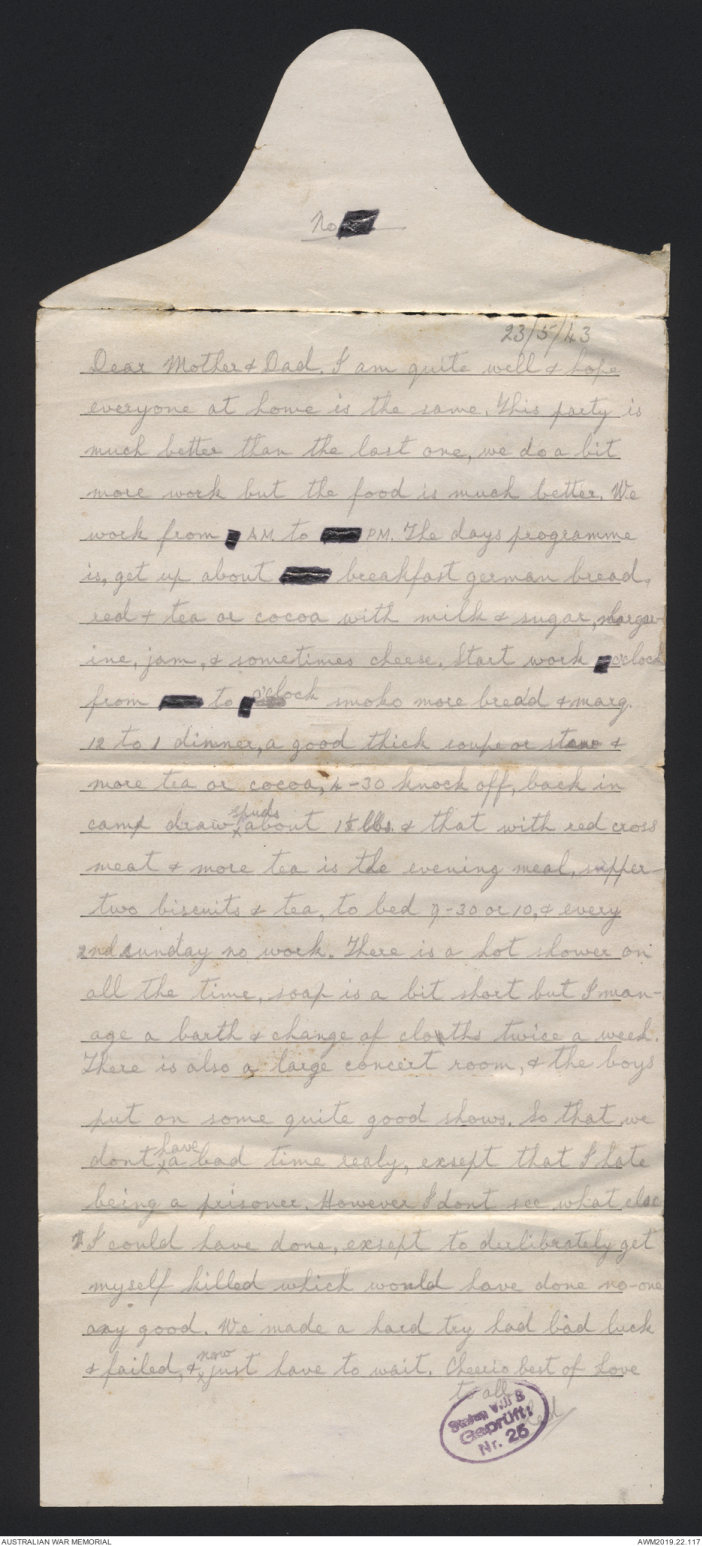 No
23/5/43
Dear Mother & Dad. I am quite well & hope
everyone at home is the same. This party is
much better than the last one, we do a bit
more work but the food is much better. We
work from AM. to PM. The days programme
is, get up about breakfast german bread,
red + tea or cocoa with milk & sugar, margar-
ine, jam, & sometimes cheese. Start work o'clock
from to o'clock smoko more bread & marg.
12 to 1 dinner, a good thick soupe or stew &
more tea or cocoa, 4-30 knock off, back in
camp draw spuds about 15 lbs. & that with red cross
meat & more tea is the evening meal, supper
two biscuits & tea, to bed 9-30 or 10, & every
2nd sunday no work. There is a hot shower on
all the time, soap is a bit short but I man-
age a barth & change of cloths twice a week.
There is also a large concert room, & the boys
put on some quite good shows. So that we
dont have a bad time realy, exsept that I hate
being a prisoner. However I dont see what else
I could have done, exsept to derlibrately get
myself killed which would have done no-one
any good. We made a hard try had bad luck
& failed, & now just have to wait. Cheerio best of love
to all
Stalag VIII B
Geprüft:
Nr. 25
AUSTRALIAN WAR MEMORIAL
AWM2019.22.117